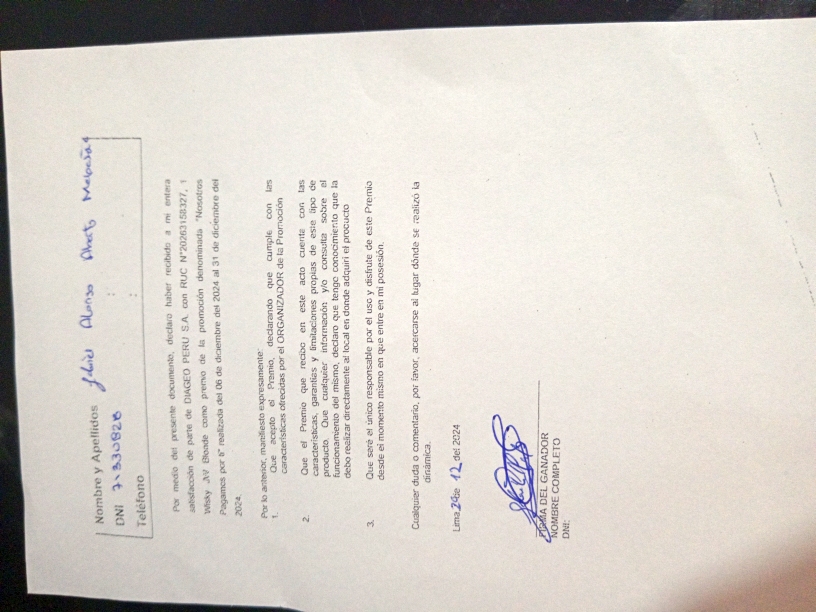 Nombre y Apellidos Alonso
DNI 74330828
Teléfono :
Por medio del presente documento, declaro haber recibido a mi entera
satisfacción de parte de DIAGEO PERU S.A. con RUC N°20263158327, 1
Wisky JW Blonde como premio de la promoción denominada "Nosotros
Pagamos por ti" realizada del 06 de diciembre del 2024 al 31 de diciembre del
2024.
Por lo anterior, manifiesto expresamente:
1. Que acepto el Premio, declarando que cumple con las
características ofrecidas por el ORGANIZADOR de la Promoción
2. Que el Premio que recibo en este acto cuenta con las
características, garantías y limitaciones propias de este tipo de
producto. Que cualquier información y/o consulta sobre el
funcionamiento del mismo, declaro que tengo conocimiento que la
debo realizar directamente al local en donde adquirí el producto
3. Que seré el único responsable por el uso y disfrute de este Premio
desde el momento mismo en que entre en mi posesión.
Cualquier duda o comentario, por favor, acercarse al lugar dónde se realizó la
dinámica.
Lima 24 de 12 del 2024
FIRMA DEL GANADOR
NOMBRE COMPLETO
DNI: